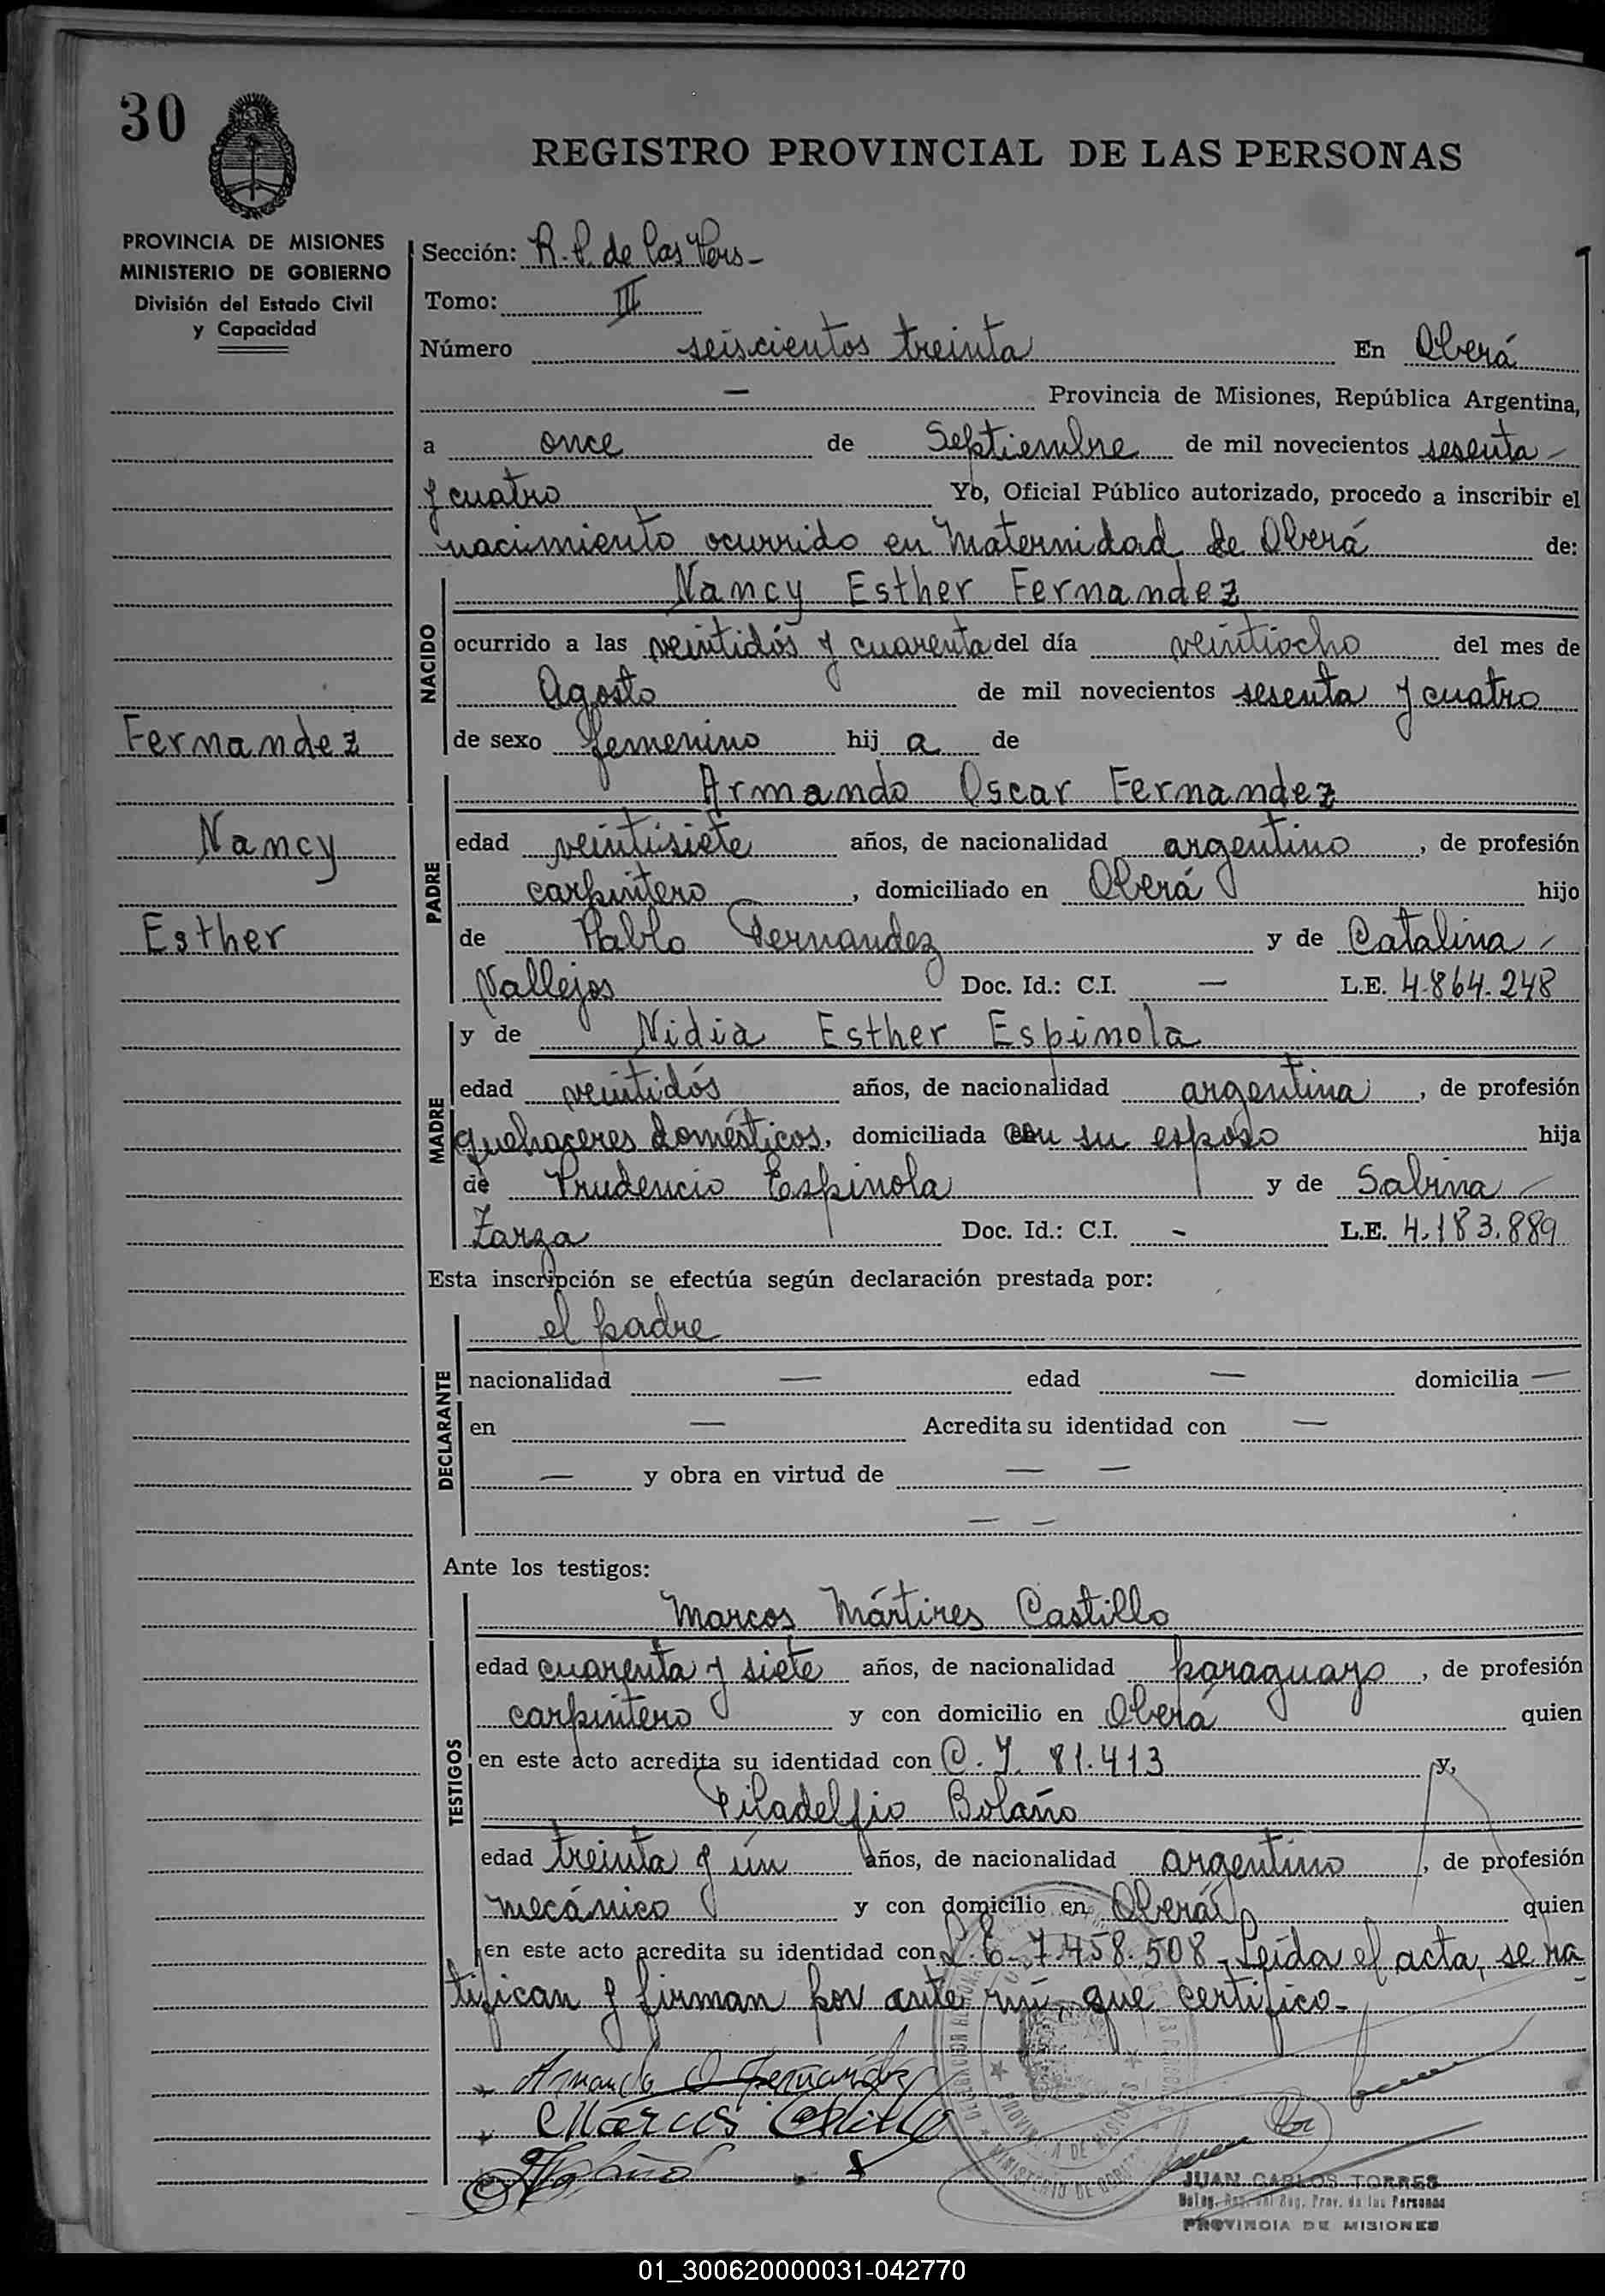 30
REGISTRO PROVINCIAL DE LAS PERSONAS
PROVINCIA DE MISIONES
MINISTERIO DE GOBIERNO
División del Estado Civil
y Capacidad
Sección: R. P. de las Pers -
Tomo: III
Número seiscientos treinta En Oberá
— Provincia de Misiones, República Argentina,
a once de Septiembre de mil novecientos sesenta -
y cuatro Yo, Oficial Público autorizado, procedo a inscribir el
nacimiento ocurrido en Maternidad de Oberá de:
NACIDO
Nancy Esther Fernandez
ocurrido a las veintidós y cuarenta del día veintiocho del mes de
Agosto de mil novecientos sesenta y cuatro
de sexo femenino hij a de
Fernandez
Nancy
Esther
PADRE
Armando Oscar Fernandez
edad veintisiete años, de nacionalidad argentino, de profesión
carpintero, domiciliado en Oberá hijo
de Pablo Fernandez y de Catalina -
Vallejos Doc. Id.: C.I. — L.E. 4.864.248
MADRE
y de Nidia Esther Espinola
edad veintidós años, de nacionalidad argentina, de profesión
quehaceres domésticos, domiciliada con su esposo hija
de Prudencio Espinola y de Sabina -
Zarza Doc. Id.: C.I. - L.E. 4.183.889
Esta inscripción se efectúa según declaración prestada por:
DECLARANTE
el padre
nacionalidad — edad — domicilia —
en — Acredita su identidad con —
— y obra en virtud de — —
— —
Ante los testigos:
TESTIGOS
Marcos Mártires Castillo
edad cuarenta y siete años, de nacionalidad paraguayo, de profesión
carpintero y con domicilio en Oberá quien
en este acto acredita su identidad con C. I. 81.413 y,
Filadelfio Bolaño
edad treinta y ún años, de nacionalidad argentino, de profesión
mecánico y con domicilio en Oberá quien
en este acto acredita su identidad con L. E. 7.458.508 - Leída el acta, se ra
tifican y firman por ante mí, que certifico -
Armando O Fernandez
Marcos Castillo
PROVINCIA DE MISIONES
JUAN CARLOS TORRES
Reg. Prov. de las Personas
PROVINCIA DE MISIONES
01_300620000031-042770